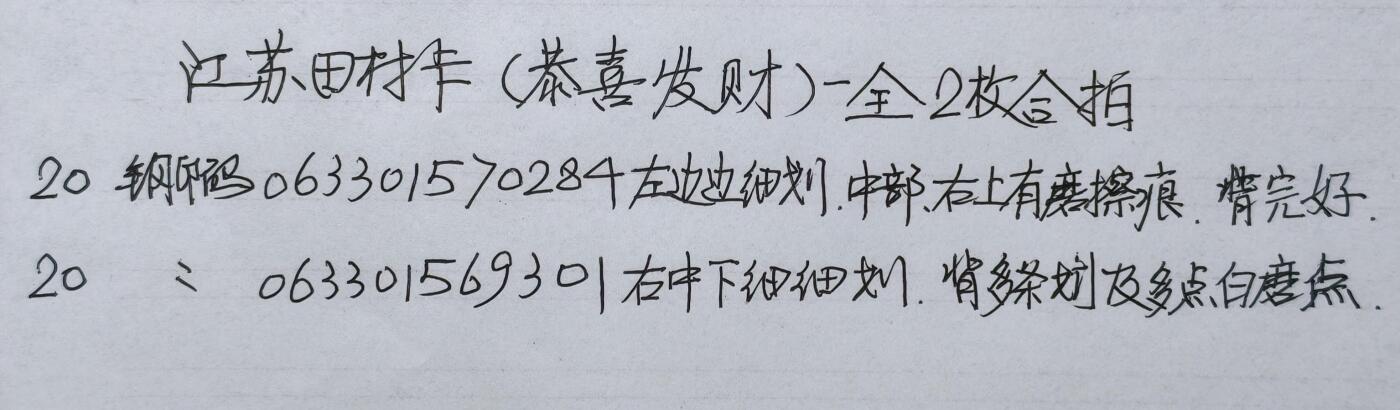 江苏田村卡(恭喜发财)-全2枚合拍
20 钢印码063301570284左边边细划.中部、右上有磨擦痕.背完好.
20 〃 063301569301右中下细细划.背多条划及多点白磨点.